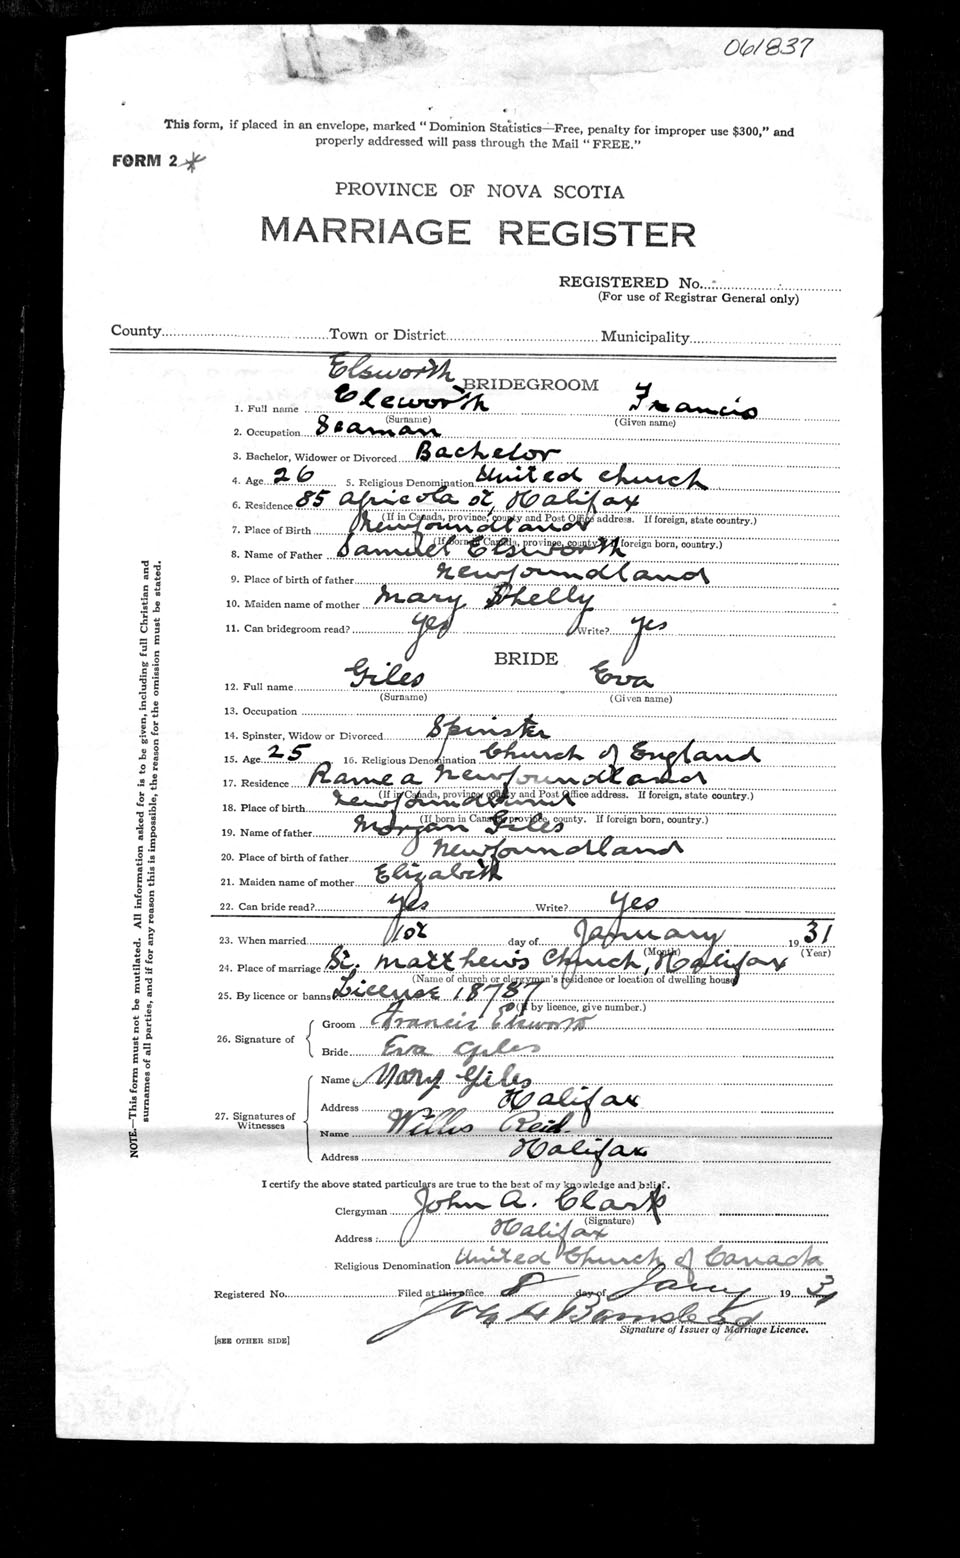 061837
This form, if placed in an envelope, marked "Dominion Statistics—Free, penalty for improper use $300," and
properly addressed will pass through the Mail "FREE."
FORM 2
PROVINCE OF NOVA SCOTIA
MARRIAGE REGISTER
REGISTERED No.
(For use of Registrar General only)
County Town or District Municipality
Elsworth
BRIDEGROOM
1. Full name Elsworth Francis
(Surname) (Given name)
2. Occupation Seaman
3. Bachelor, Widower or Divorced Bachelor
4. Age 26 5. Religious Denomination United Church
6. Residence 85 Agricola St, Halifax
(If in Canada, province, county and Post Office address. If foreign, state country.)
7. Place of Birth Newfoundland
(If Born in Canada, province, county. If foreign born, country.)
8. Name of Father Samuel Elsworth
9. Place of birth of father Newfoundland
10. Maiden name of mother Mary Shelly
11. Can bridegroom read? Yes Write? Yes
BRIDE
12. Full name Giles Eva
(Surname) (Given name)
13. Occupation
14. Spinster, Widow or Divorced Spinster
15. Age 25 16. Religious Denomination Church of England
17. Residence Ramea Newfoundland
(If in Canada, province, county and Post Office address. If foreign, state country.)
18. Place of birth Newfoundland
(If born in Canada, province, county. If foreign born, country.)
19. Name of father Morgan Giles
20. Place of birth of father Newfoundland
21. Maiden name of mother Elizabeth
22. Can bride read? Yes Write? Yes
23. When married 1st day of January 1931
(Month) (Year)
24. Place of marriage St. Matthew's Church, Halifax
(Name of church or clergyman's residence or location of dwelling house)
25. By licence or banns License 18787
(If by licence, give number.)
26. Signature of
Groom Francis Elsworth
Bride Eva Giles
27. Signatures of Witnesses
Name Mary Giles
Address Halifax
Name Willis Reid
Address Halifax
I certify the above stated particulars are true to the best of my knowledge and belief.
Clergyman John A. Clark
(Signature)
Address Halifax
Religious Denomination United Church of Canada
Registered No. Filed at this office 8 day of Jany 1931
Signature of Issuer of Marriage Licence.
[SEE OTHER SIDE]
NOTE.—This form must not be mutilated. All information asked for is to be given, including full Christian and
surnames of all parties, and if for any reason this is impossible, the reason for the omission must be stated.